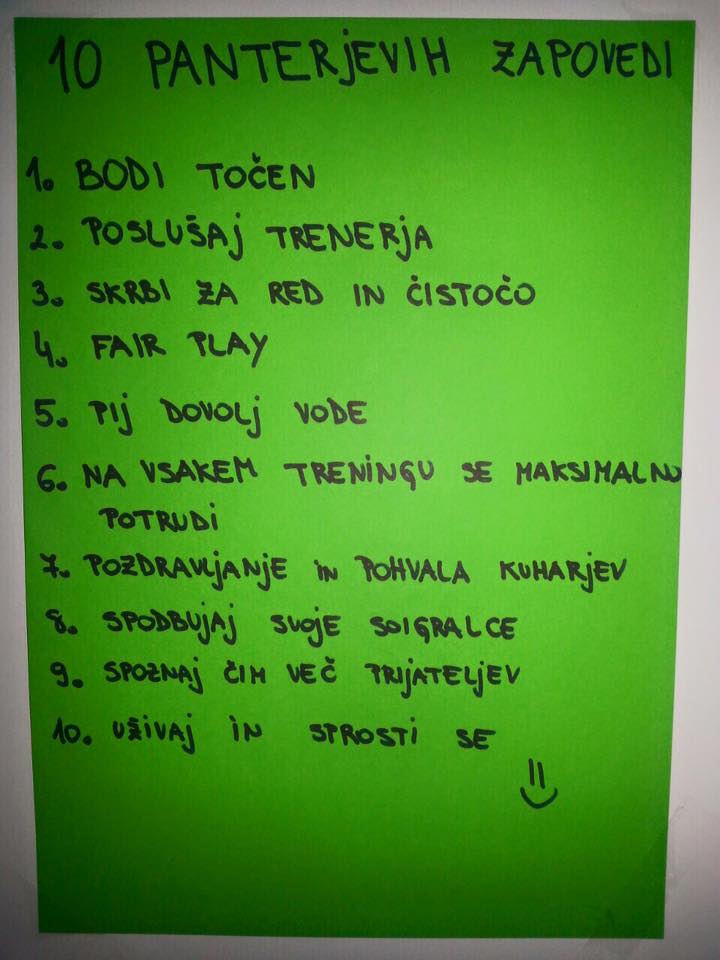 10 PANTERjEVIH ZAPOVEDI
1. BODI TOČEN
2. POSLUŠAj TRENERjA
3. SKRBI ZA RED IN ČISTOČO
4. FAIR PLAY
5. PIj DOVOLj VODE
6. NA VSAKEM TRENINGU SE MAKSIMALNO
POTRUDi
7. POZDRAVLjANjE iN POHVALA KUHARjEV
8. SPODBUjAj SVOjE SOIGRALCE
9. SPOZNAj ČIM VEČ PRIjATELjEV
10. UŽIVAj IN SPROSTI SE